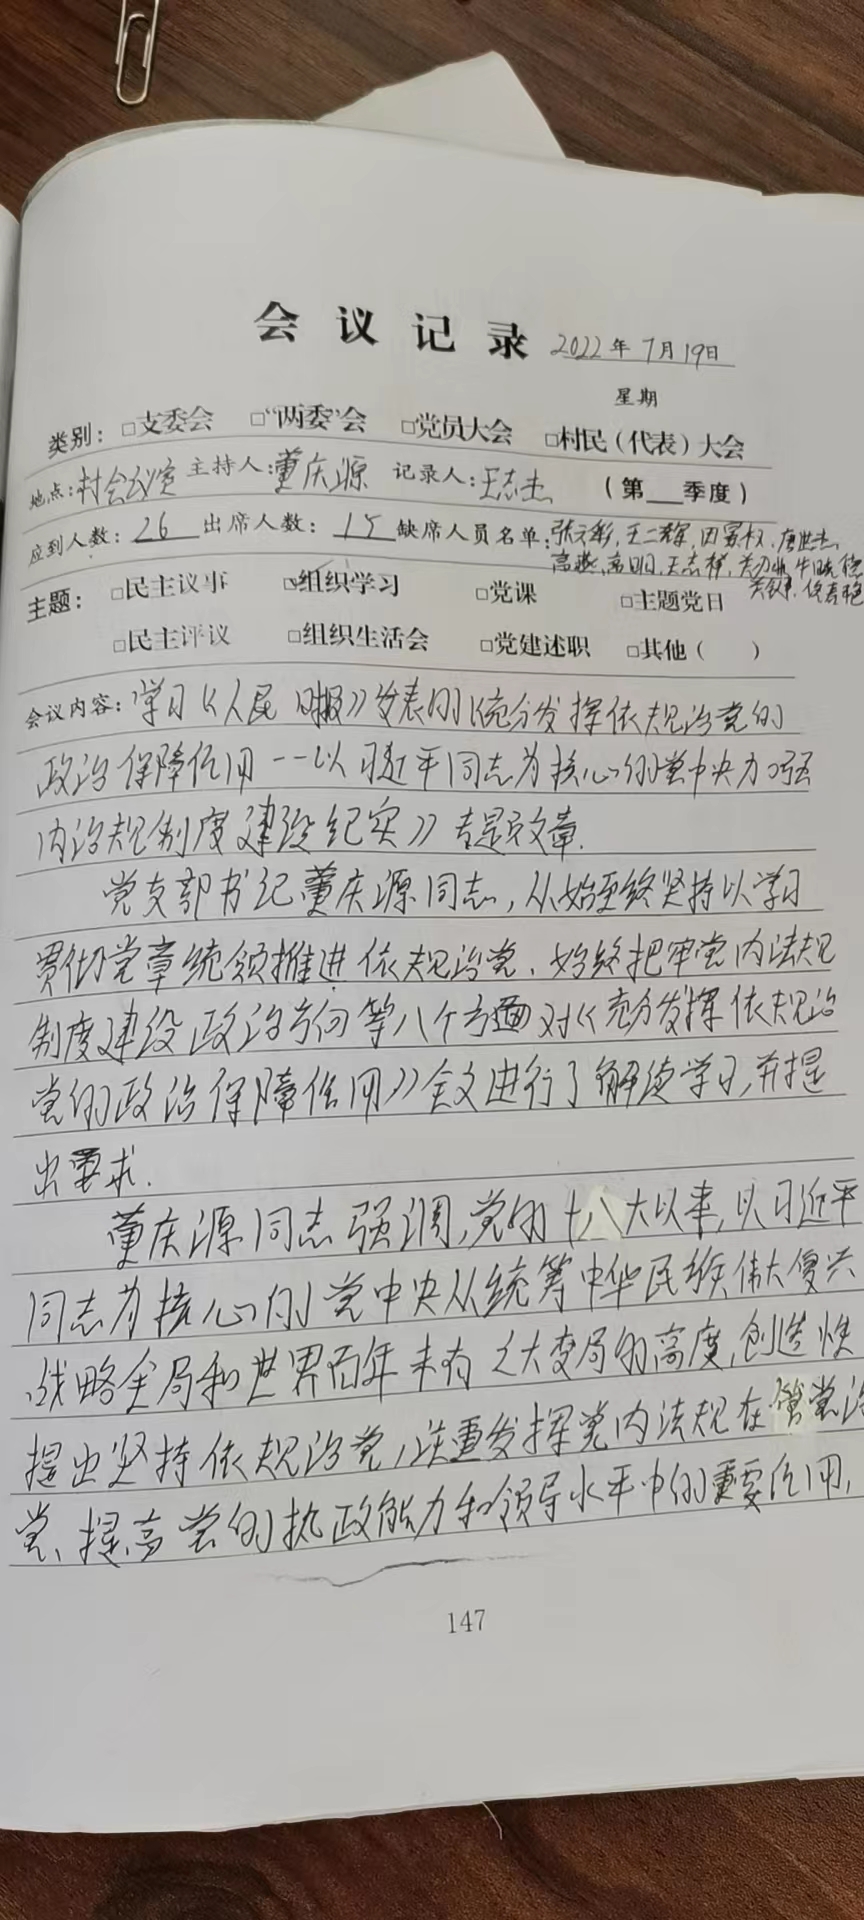 会议记录 2022年7月19日
星期
类别：□支委会 □“两委”会 □党员大会 □村民（代表）大会
地点：村会议室 主持人：董庆源 记录人：王志杰 （第___季度）
应到人数：26 出席人数：15 缺席人员名单：张文彩，王二辉，田富权，唐世杰，
高燕，高明，王志祥，牛晓德
主题：□民主议事 ☑组织学习 □党课 □主题党日
□民主评议 □组织生活会 □党建述职 □其他（ ）
会议内容：学习《人民日报》发表的《充分发挥依规治党的
政治保障作用--以习近平同志为核心的党中央加强
内法规制度建设纪实》专题文章.
党支部书记董庆源同志，从始至终坚持以学习
贯彻党章统领推进依规治党、始终把牢党内法规
制度建设政治方向等八个方面对《充分发挥依规治
党的政治保障作用》全文进行了解读学习，并提
出要求.
董庆源同志强调，党的十八大以来，以习近平
同志为核心的党中央从统筹中华民族伟大复兴
战略全局和世界百年未有之大变局的高度，创造性
提出坚持依规治党，注重发挥党内法规在管党治
党、提高党的执政能力和领导水平中的重要作用，
147